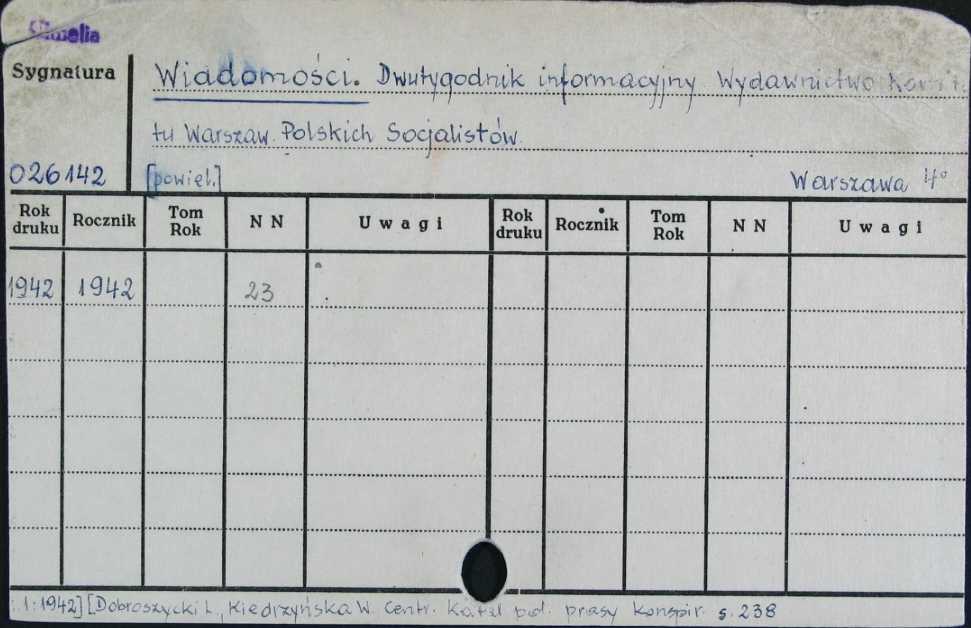 Cimelia
Sygnatura
Wiadomości. Dwutygodnik informacyjny Wydawnictwo Komite
tu Warszaw. Polskich Socjalistów.
026142 [powiel.] Warszawa 4°
Rok druku Rocznik Tom Rok N N Uwagi Rok druku Rocznik Tom Rok N N Uwagi
1942 1942 23
1:1942] [Dobroszycki L., Kiedrzyńska W. Centr. Katal. pol. prasy konspir. s. 238